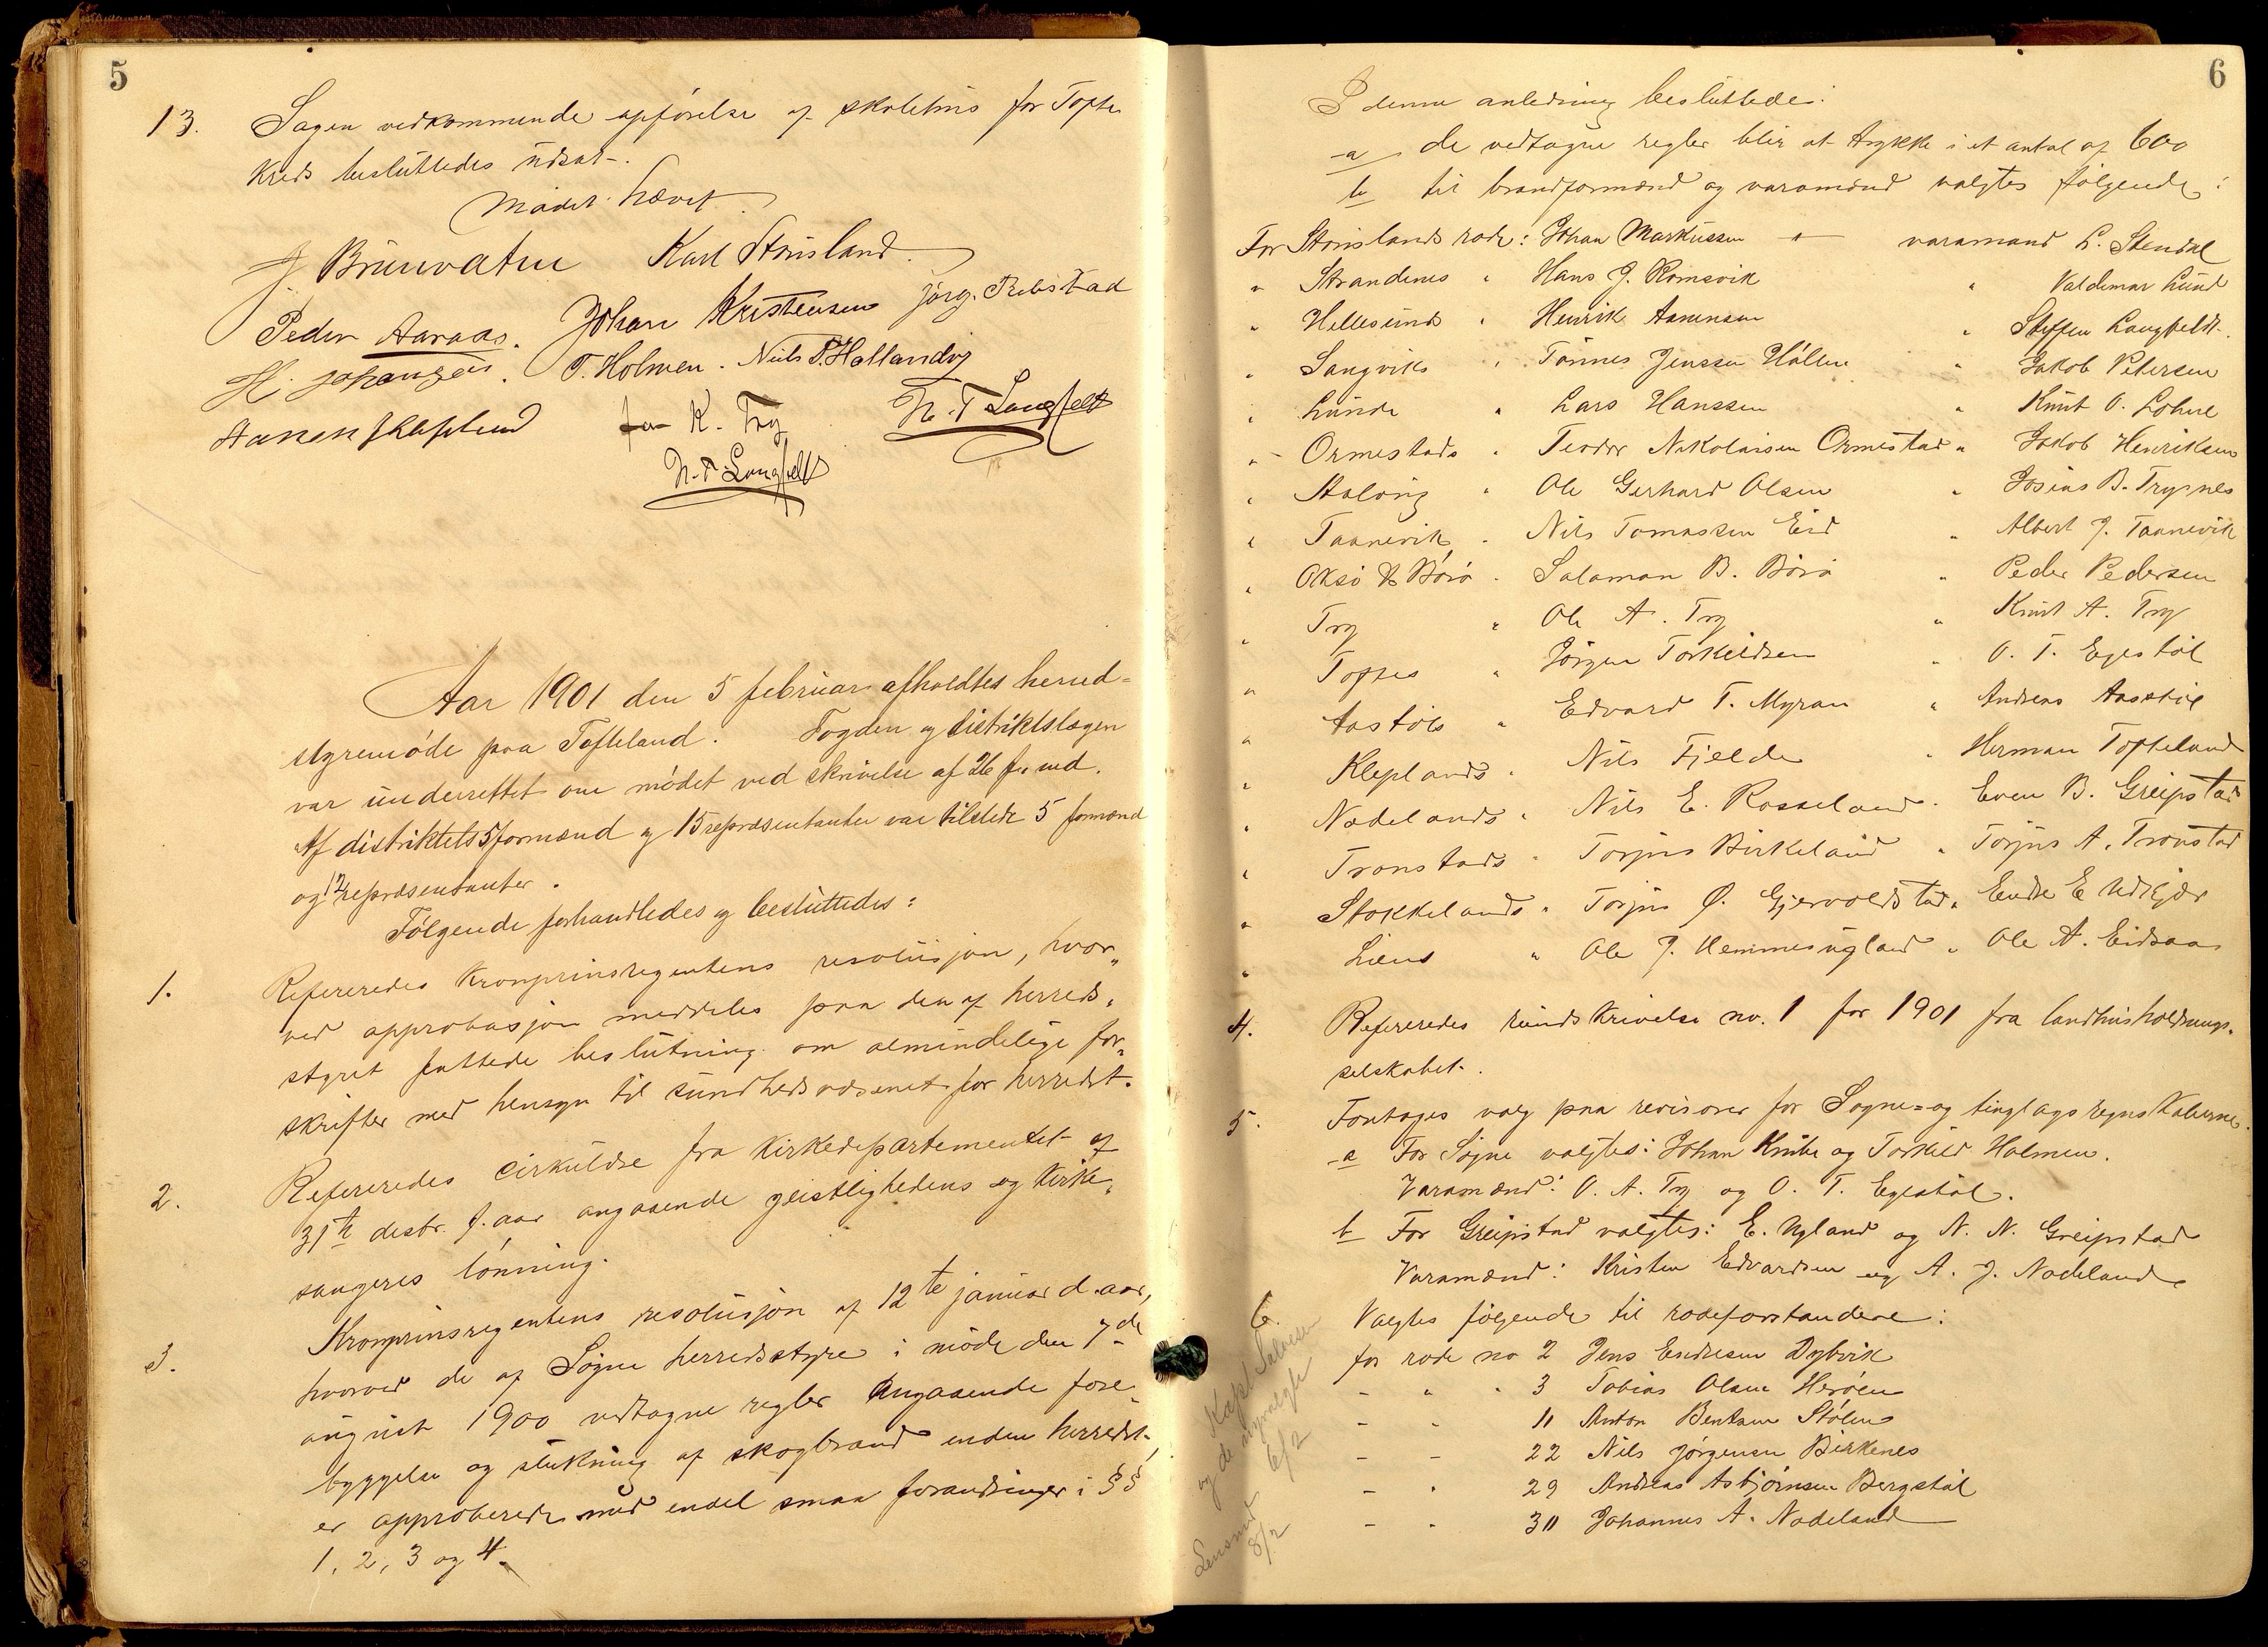 5
13. Sagen vedkommende opførelse af skolehus for Tofte
kreds besluttedes udsat.
Mødet hævet.
J Brunvatne Karl Stousland.
Peder Aaraas. Johan Kristensen Jørg. Rebstad
H. Johansen. T. Holmen. Niels P. Hallandvj
Aanen Kleplund for K. Try N. T Langfeldt
N. T. Langfeldt
Aar 1901 den 5 februar afholdtes herred=
styremøde paa Tofteland. Fogden og distriktslægen
var underrettet om mødet ved skrivelse af 26 f. md.
Af distriktets 5 formænd og 15 repræsentanter var tilstede 5 formænd
og 12 repræsentanter.
Følgende forhandledes og besluttedes:
1. Refereredes kronprinsregentens resolusjon, hvor„
ved approbasjon meddeles paa den af herreds„
styret fattede beslutning om almindelige for„
skrifter med hensyn til sundhedsvæsenet for herredet.
2. Refereredes cirkulære fra kirkedepartementet af
31te desbr. f. aar angaaende geistlighedens og kirke„
sangeres lønning.
3. Kronprinsregentens resolusjon af 12te januar d. aar,
hvorved de af Søgne herredsstyre i møde den 7de
august 1900 vedtagne regler angaaende fore„
byggelse og slukning af skogbrand inden herredet,
er approberede med endel smaa forandringer i §§
1, 2, 3 og 4.
6
I denne anledning besluttedes:
a de vedtagne regler blir at trykke i et antal af 600
b til brandformænd og varamænd valgtes følgende:
For Stouslands rode: Johan Markussen " varamand L. Stendal
" Strandenes " Hans J. Romsvik " Valdemar Lund
" Hellesunds " Henrik Aanensen " Steffen Langfeldt.
" Langviks " Tønnes Jenssen Høllen " Jakob Petersen
" Lunde " Lars Hanssen " Knut O. Lohne
" Ormestads " Teodor Nikolaisen Ormestad " Jakob Henriksen
" Staløng " Ole Gerhard Olsen " Josias B. Trysnes
" Taanevik " Nils Tomassen Eid " Albert J. Taanevik
" Oksø & Borø " Salamon B. Borø " Peder Pedersen
" Try " Ole A. Try " Knut A. Try
" Toftes " Jørgen Torkildsen " O. T. Egestøl
" Aastøls " Edvard T. Myran " Andreas Aasstøl
" Kleplands " Nils Fjelde " Herman Tofteland
" Nodelands " Nils E. Rosseland " Even B. Greipstad
" Tronstads " Torjus Birkeland " Torjus A. Tronstad
" Stokkelands " Torjus Ø. Gjervoldstad " Endre E Udkjær
" Liens " Ole J. Hemmesugland " Ole A. Eidsaa
4. Refereredes rundskrivelse no. 1 for 1901 fra landhusholdnings„
selskabet.
5. Foretages valg paa revisorer for Sogne= og tinglagsregnskaberne.
a For Søgne valgtes: Johan Knibe og Torkild Holmen.
Varamænd: O. A. Try og O. T. Egestøl.
b For Greipstad valgtes: E. Ugland og N. N. Greipstad
Varamænd: Kristen Edvardsen og A. J. Nodeland
6. Valgtes følgende til rodeforstandere:
for rode no 2 Jens Endresen Dybvik
" " " 3 Tobias Olsen Herøen
" " 11 Anton Bentsen Stølen
" " 22 Nils Jørgensen Birkenes
" " 29 Andreas Asbjørnsen Bergstøl
" " 30 Johannes A. Nodeland
Kapt Salvesen
og de nyvalgte
6/2
Lensmd
8/2